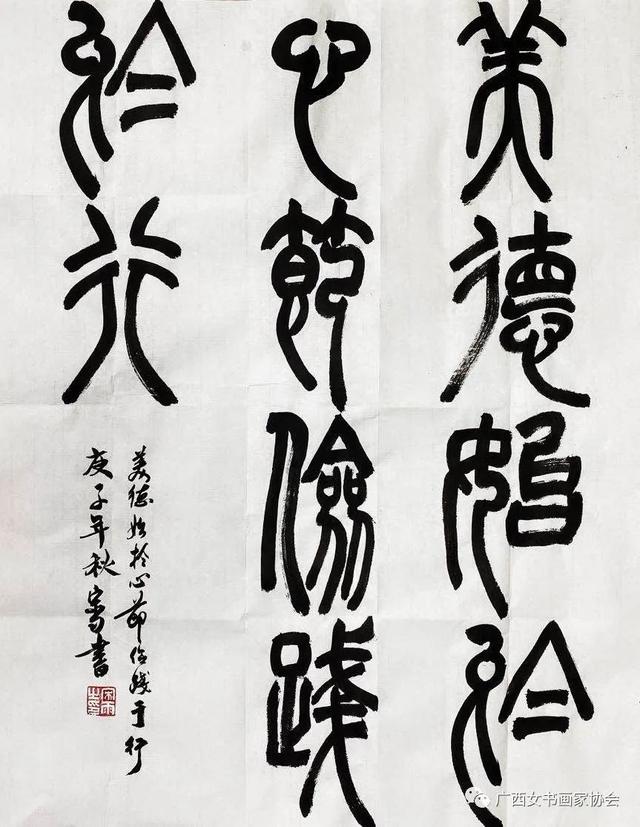 美德始於
心節儉踐
於行
美德始於心节俭践于行
庚子年秋 書
宋雨之印
广西女书画家协会